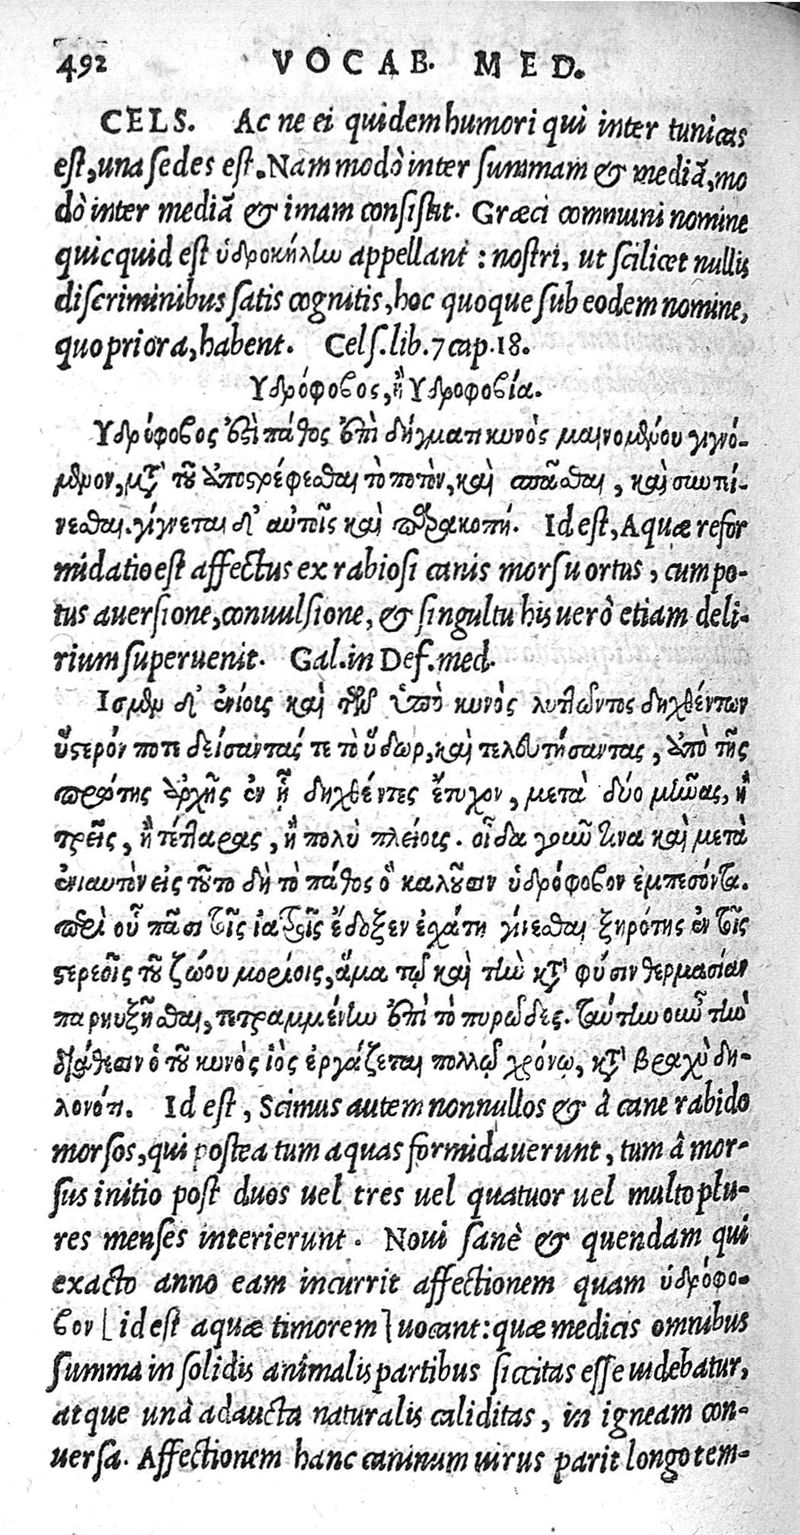 492 VOCAB. MED.
CELS. Ac ne ei quidem humori qui inter tunicas
est, una sedes est. Nam modò inter summam & mediā, mo
dò inter mediā & imam consistit. Græci communi nomine
quicquid est ὑδροκήλην appellant: nostri, ut scilicet nullis
discriminibus satis cognitis, hoc quoque sub eodem nomine,
quo priora, habent. Cels. lib. 7 cap. 18.
Υδρόφοβος, ἢ Υδροφοβία.
Υδρόφοβος ἐστὶ πάθος ἐπὶ δήγματι κυνὸς μαινομένου γιγνό-
μενον, μετὰ τοῦ ἀποστρέφεσθαι τὸ ποτὸν, καὶ σπᾶσθαι, καὶ
νεσθαι. γίγνεται δ' αὐτοῖς καὶ παρακοπή. Id est, Aquæ refor
midatio est affectus ex rabiosi canis morsu ortus, cum po-
tus auersione, conuulsione, & singultu his uerò etiam deli-
rium superuenit. Gal. in Def. med.
Ισμεν δ' ἐνίοις καὶ τῶν ὑπὸ κυνὸς λυττῶντος δηχθέντων
ὕστερόν ποτε δείσαντάς τε τὸ ὕδωρ, καὶ τελευτήσαντας, ἀπὸ τῆς
πρώτης ἀρχῆς ἐν ᾗ δηχθέντες ἔτυχον, μετὰ δύο μῆνας, ἢ
τρεῖς, ἢ τέτταρας, ἢ πολὺ πλείους. οἶδα γοῦν τινα καὶ μετὰ
ἐνιαυτὸν εἰς τοῦτο δὴ τὸ πάθος ὃ καλοῦσιν ὑδρόφοβον ἐμπεσόντα.
περὶ οὗ πᾶσι τοῖς ἰατροῖς ἔδοξεν ἐσχάτη γίνεσθαι ξηρότης ἐν τοῖς
στερεοῖς τοῦ ζώου μορίοις, ἅμα τῷ καὶ τὴν κατὰ φύσιν θερμασίαν
παρηυξῆσθαι, τετραμμένην ἐπὶ τὸ πυρῶδες. ταύτην οὖν τὴν
διάθεσιν ὁ τοῦ κυνὸς ἰὸς ἐργάζεται πολλῷ χρόνῳ, κατὰ βραχὺ δη-
λονότι. Id est, Scimus autem nonnullos & à cane rabido
morsos, qui postea tum aquas formidauerunt, tum à mor-
sus initio post duos uel tres uel quatuor uel multo plu-
res menses interierunt. Noui sanè & quendam qui
exacto anno eam incurrit affectionem quam ὑδρόφο-
βον [id est aquæ timorem] uocant: quæ medicis omnibus
summa in solidis animalis partibus siccitas esse uidebatur,
atque unà adaucta naturalis caliditas, in igneam con-
uersa. Affectionem hanc caninum uirus parit longo tem-